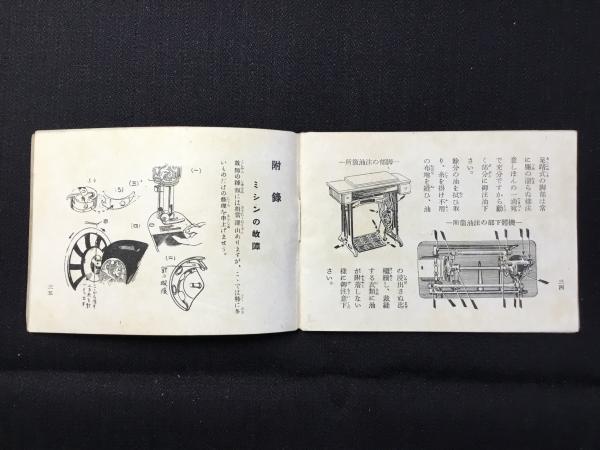 足踏式の脚部は常
に塵の溜らぬ様注
意しほんの一滴宛
で充分ですから動
く部分に御注油下
さい。
餘分の油を拭ひ取
り、糸を掛け不用
の布地を縫ひ、油
―所箇油注の部脚―
―所箇油注の部下體機―
の浸出さぬ迄
縫し、裁縫
する衣類に油
が附着しない
様に御注意下
さい。
三四
附錄
ミシンの故障
故障の種類には相當澤山ありますが、こゝでは特に多
いものだけの修理を申上げませう。
(一)
(二)
(四)
(五)
三五